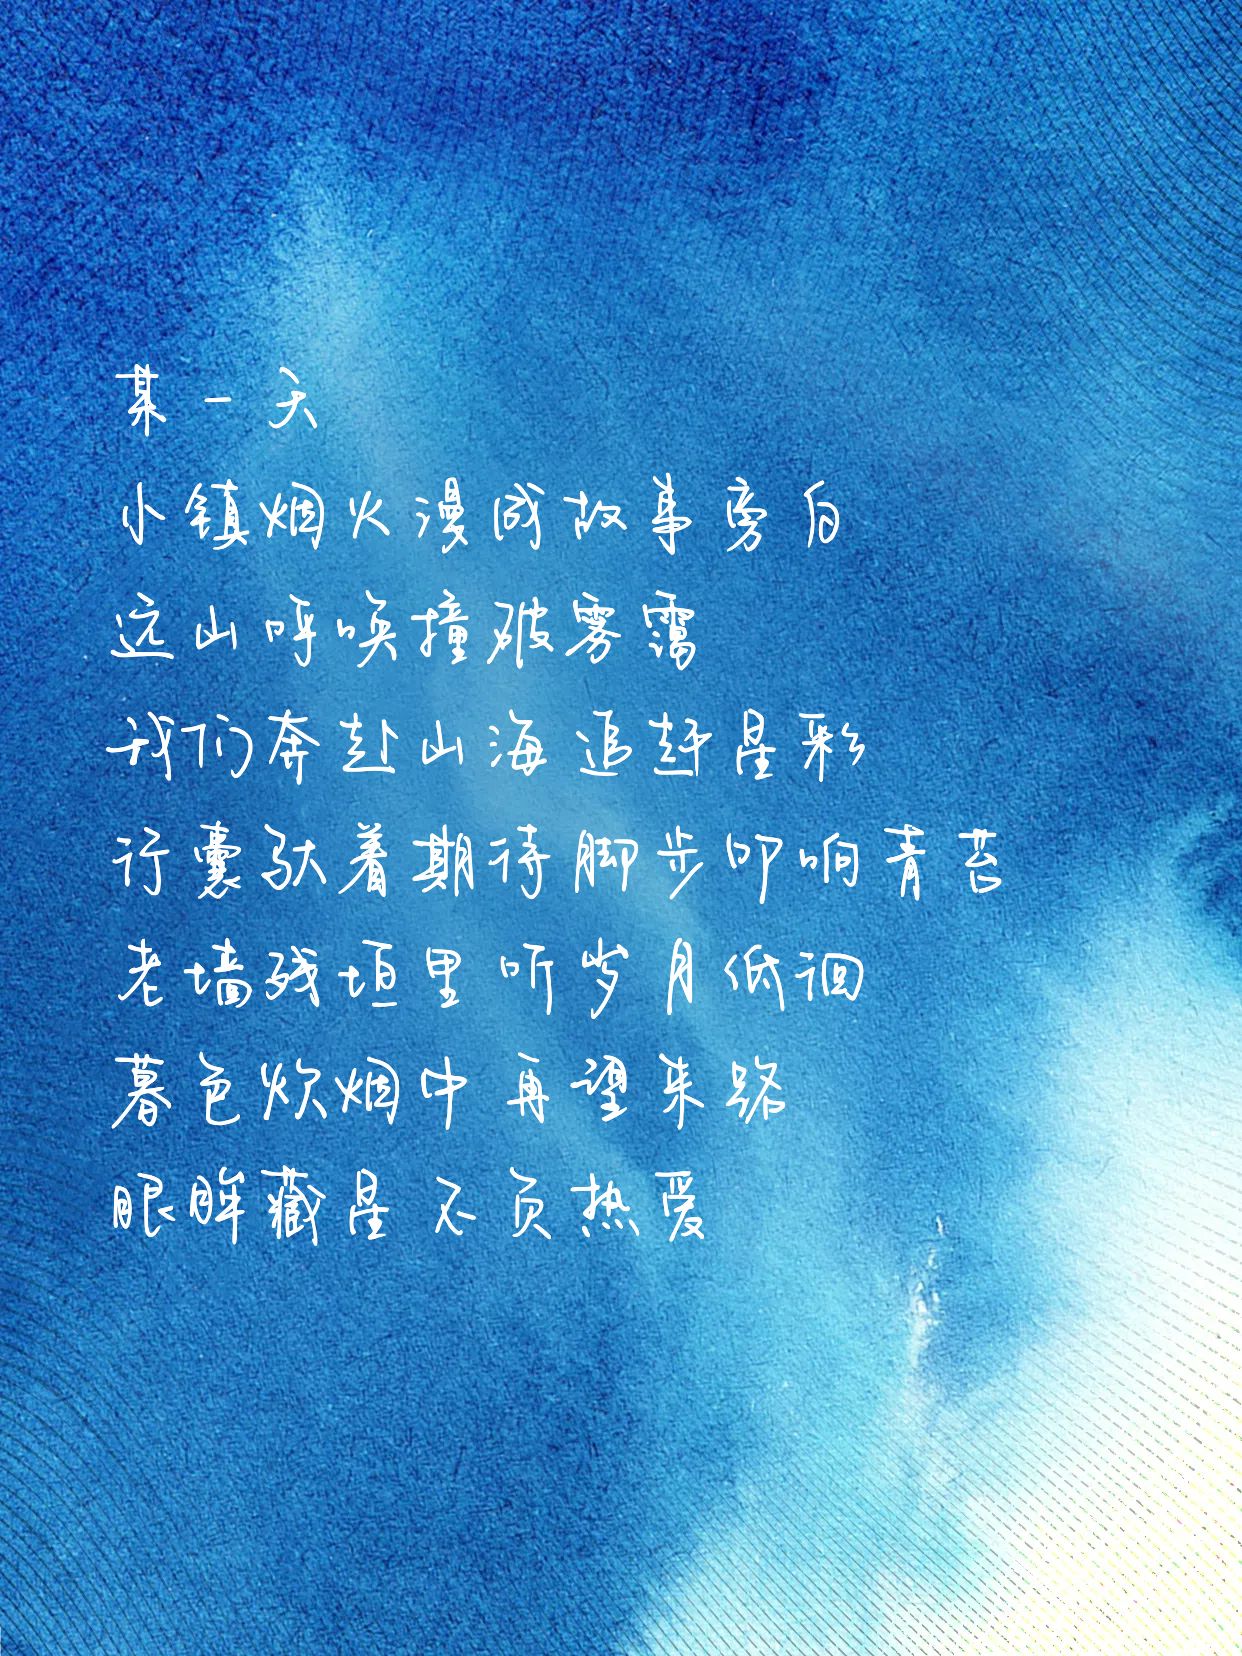 某一天
小镇烟火漫成故事旁白
远山呼唤撞破雾霭
我们奔赴山海追赶星彩
行囊驮着期待脚步叩响青苔
老墙残垣里听岁月低徊
暮色炊烟中再望来路
眼眸藏星不负热爱